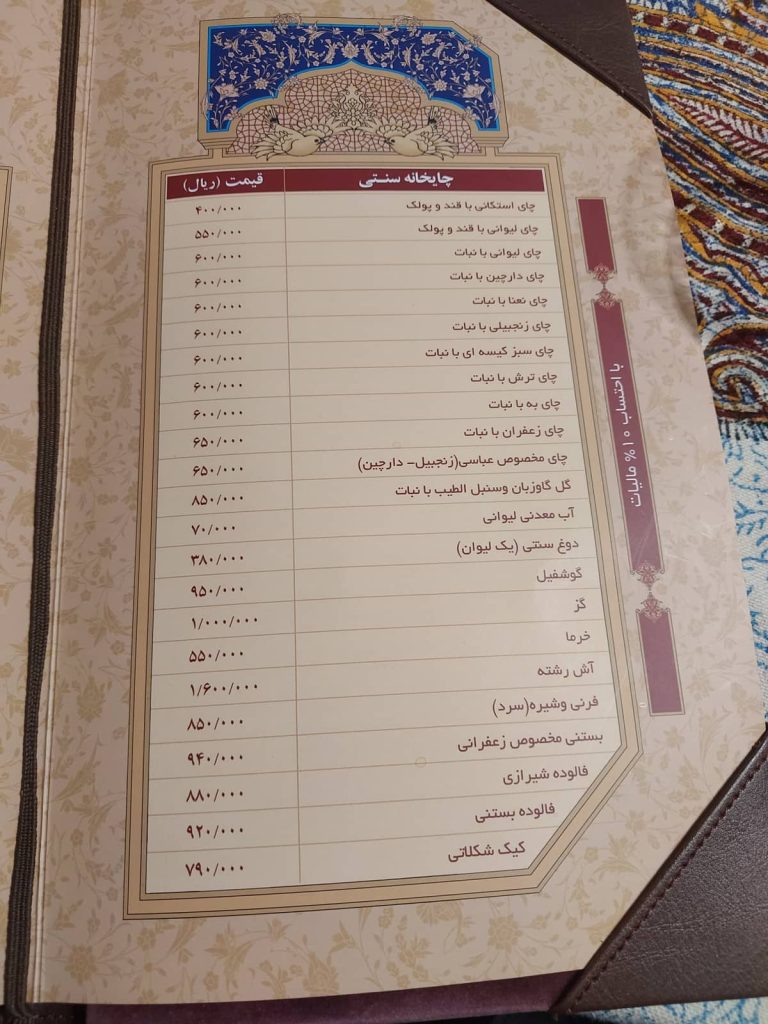 چایخانه سنتی قیمت (ریال)
چای استکانی با قند و پولک ۴۰۰/۰۰۰
چای لیوانی با قند و پولک ۵۵۰/۰۰۰
چای لیوانی با نبات ۶۰۰/۰۰۰
چای دارچین با نبات ۶۰۰/۰۰۰
چای نعنا با نبات ۶۰۰/۰۰۰
چای زنجبیلی با نبات ۶۰۰/۰۰۰
چای سبز کیسه ای با نبات ۶۰۰/۰۰۰
چای ترش با نبات ۶۰۰/۰۰۰
چای به با نبات ۶۰۰/۰۰۰
چای زعفران با نبات ۶۵۰/۰۰۰
چای مخصوص عباسی(زنجبیل- دارچین) ۶۵۰/۰۰۰
گل گاوزبان وسنبل الطیب با نبات ۸۵۰/۰۰۰
آب معدنی لیوانی ۷۰/۰۰۰
دوغ سنتی (یک لیوان) ۳۸۰/۰۰۰
گوشفیل ۹۵۰/۰۰۰
گز ۱/۰۰۰/۰۰۰
خرما ۵۵۰/۰۰۰
آش رشته ۱/۶۰۰/۰۰۰
فرنی وشیره(سرد) ۸۵۰/۰۰۰
بستنی مخصوص زعفرانی ۹۴۰/۰۰۰
فالوده شیرازی ۸۸۰/۰۰۰
فالوده بستنی ۹۲۰/۰۰۰
کیک شکلاتی ۷۹۰/۰۰۰
با احتساب ۱۰% مالیات